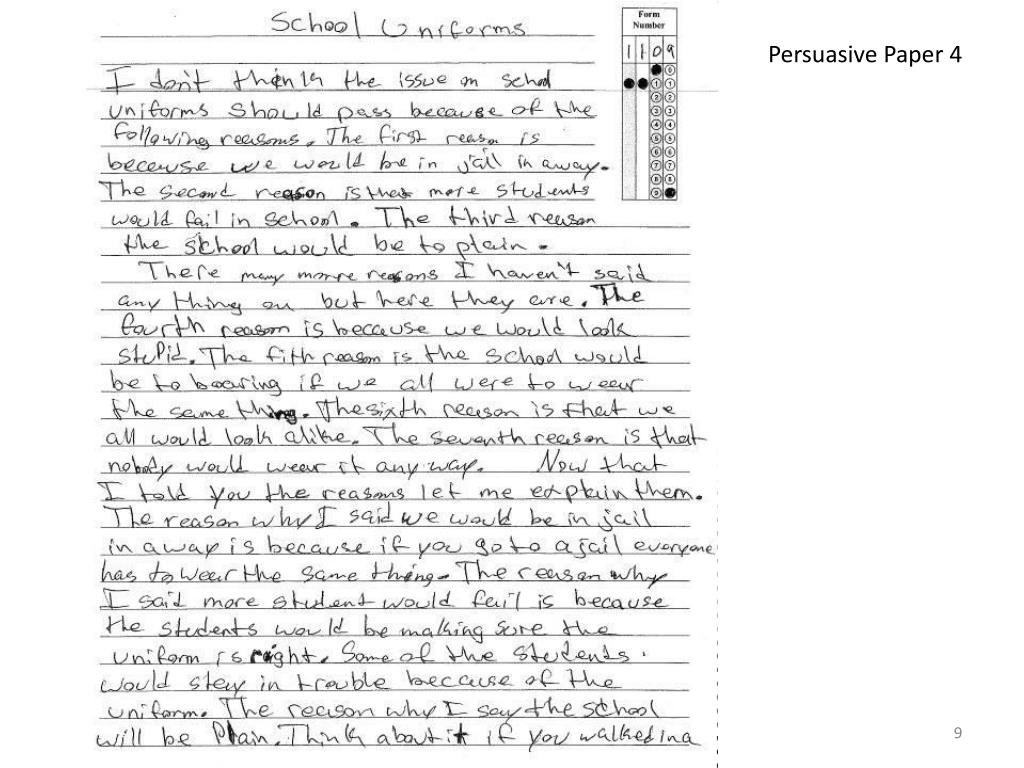 School Uniforms
Form
Number
1 1 0 9
Persuasive Paper 4
I don't think the issue on school
uniforms should pass because of the
following reasons. The first reason is
because we would be in jail in away.
The second reason is that more students
would fail in school. The third reason
the school would be to plain.
There many more reasons I haven't said
any thing on but here they are. The
fourth reason is because we would look
stupid. The fith reason is the school would
be to boaring if we all were to wear
the same thing. The sixth reason is that we
all would look alike. The seventh reason is that
nobody would wear it any way. Now that
I told you the reasons let me explain them.
The reason why I said we would be in jail
in away is because if you go to a jail everyone
has to wear the same thing. The reason why
I said more student would fail is because
the students would be making sure the
uniform is right. Some of the students
would stay in trouble because of the
uniform. The reason why I say the school
will be Plain. Think about it if you walked in a
9